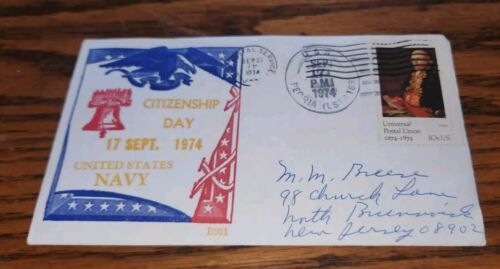 CITIZENSHIP
DAY
17 SEPT. 1974
UNITED STATES
NAVY
B001
SEP 23
1974
U.S.S.
SEP
17
P.M.
1974
PEORIA (LST-1183)
Universal
Postal Union
1874-1974 10c US
M. M. Breese
98 Church Lane
North Brunswick
New Jersey 08902